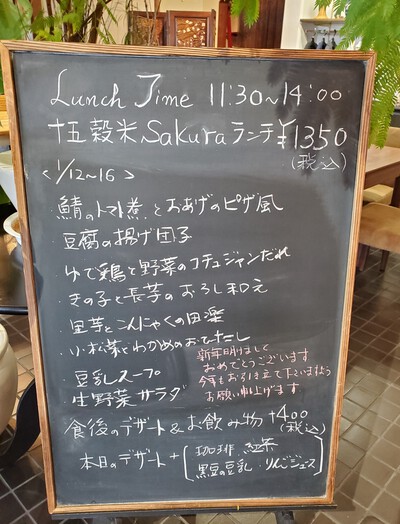 Lunch Time 11:30~14:00
十五穀米 Sakura ランチ ¥1350
(税込)
<1/12~16>
・鯖のトマト煮とおあげのピザ風
・豆腐の揚げ団子
・ゆで鶏と野菜のコチュジャンだれ
・きの子と長芋のおろし和え
・里芋とこんにゃくの田楽
・小松菜とわかめのおひたし
・豆乳スープ
生野菜サラダ
新年明けまして
おめでとうございます
今年もお引き立て下さいますよう
お願い申し上げます
食後のデザート&お飲み物 +400
(税込)
本日のデザート + 珈琲・紅茶
黒豆の豆乳・りんごジュース